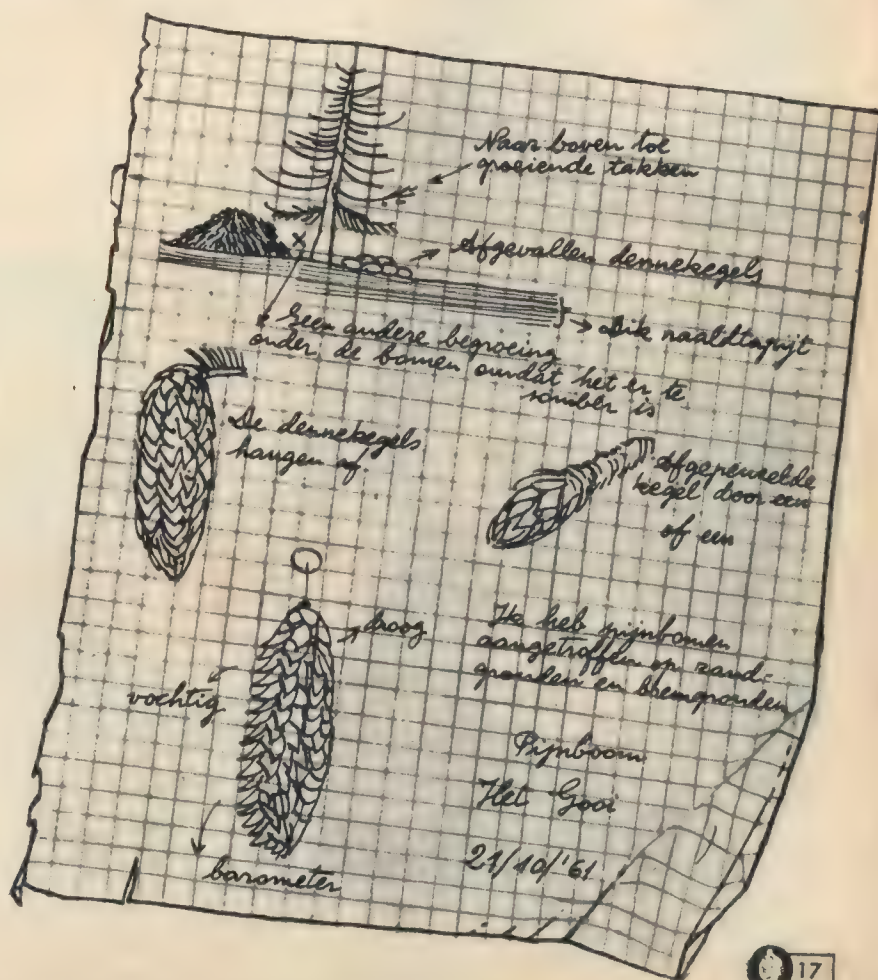 Naar boven toe
groeiende takken
Afgevallen dennekegels
Dik naaldtapijt
Geen andere begroeiing
onder de bomen omdat het er te
somber is
De dennekegels
hangen af.
Afgepeuzelde
kegel door een
of een
droog
vochtig
barometer
Ik heb pijnbomen
aangetroffen op zand-
gronden en leemgronden
Pijnboom
Het Gooi
21/10/'61
17